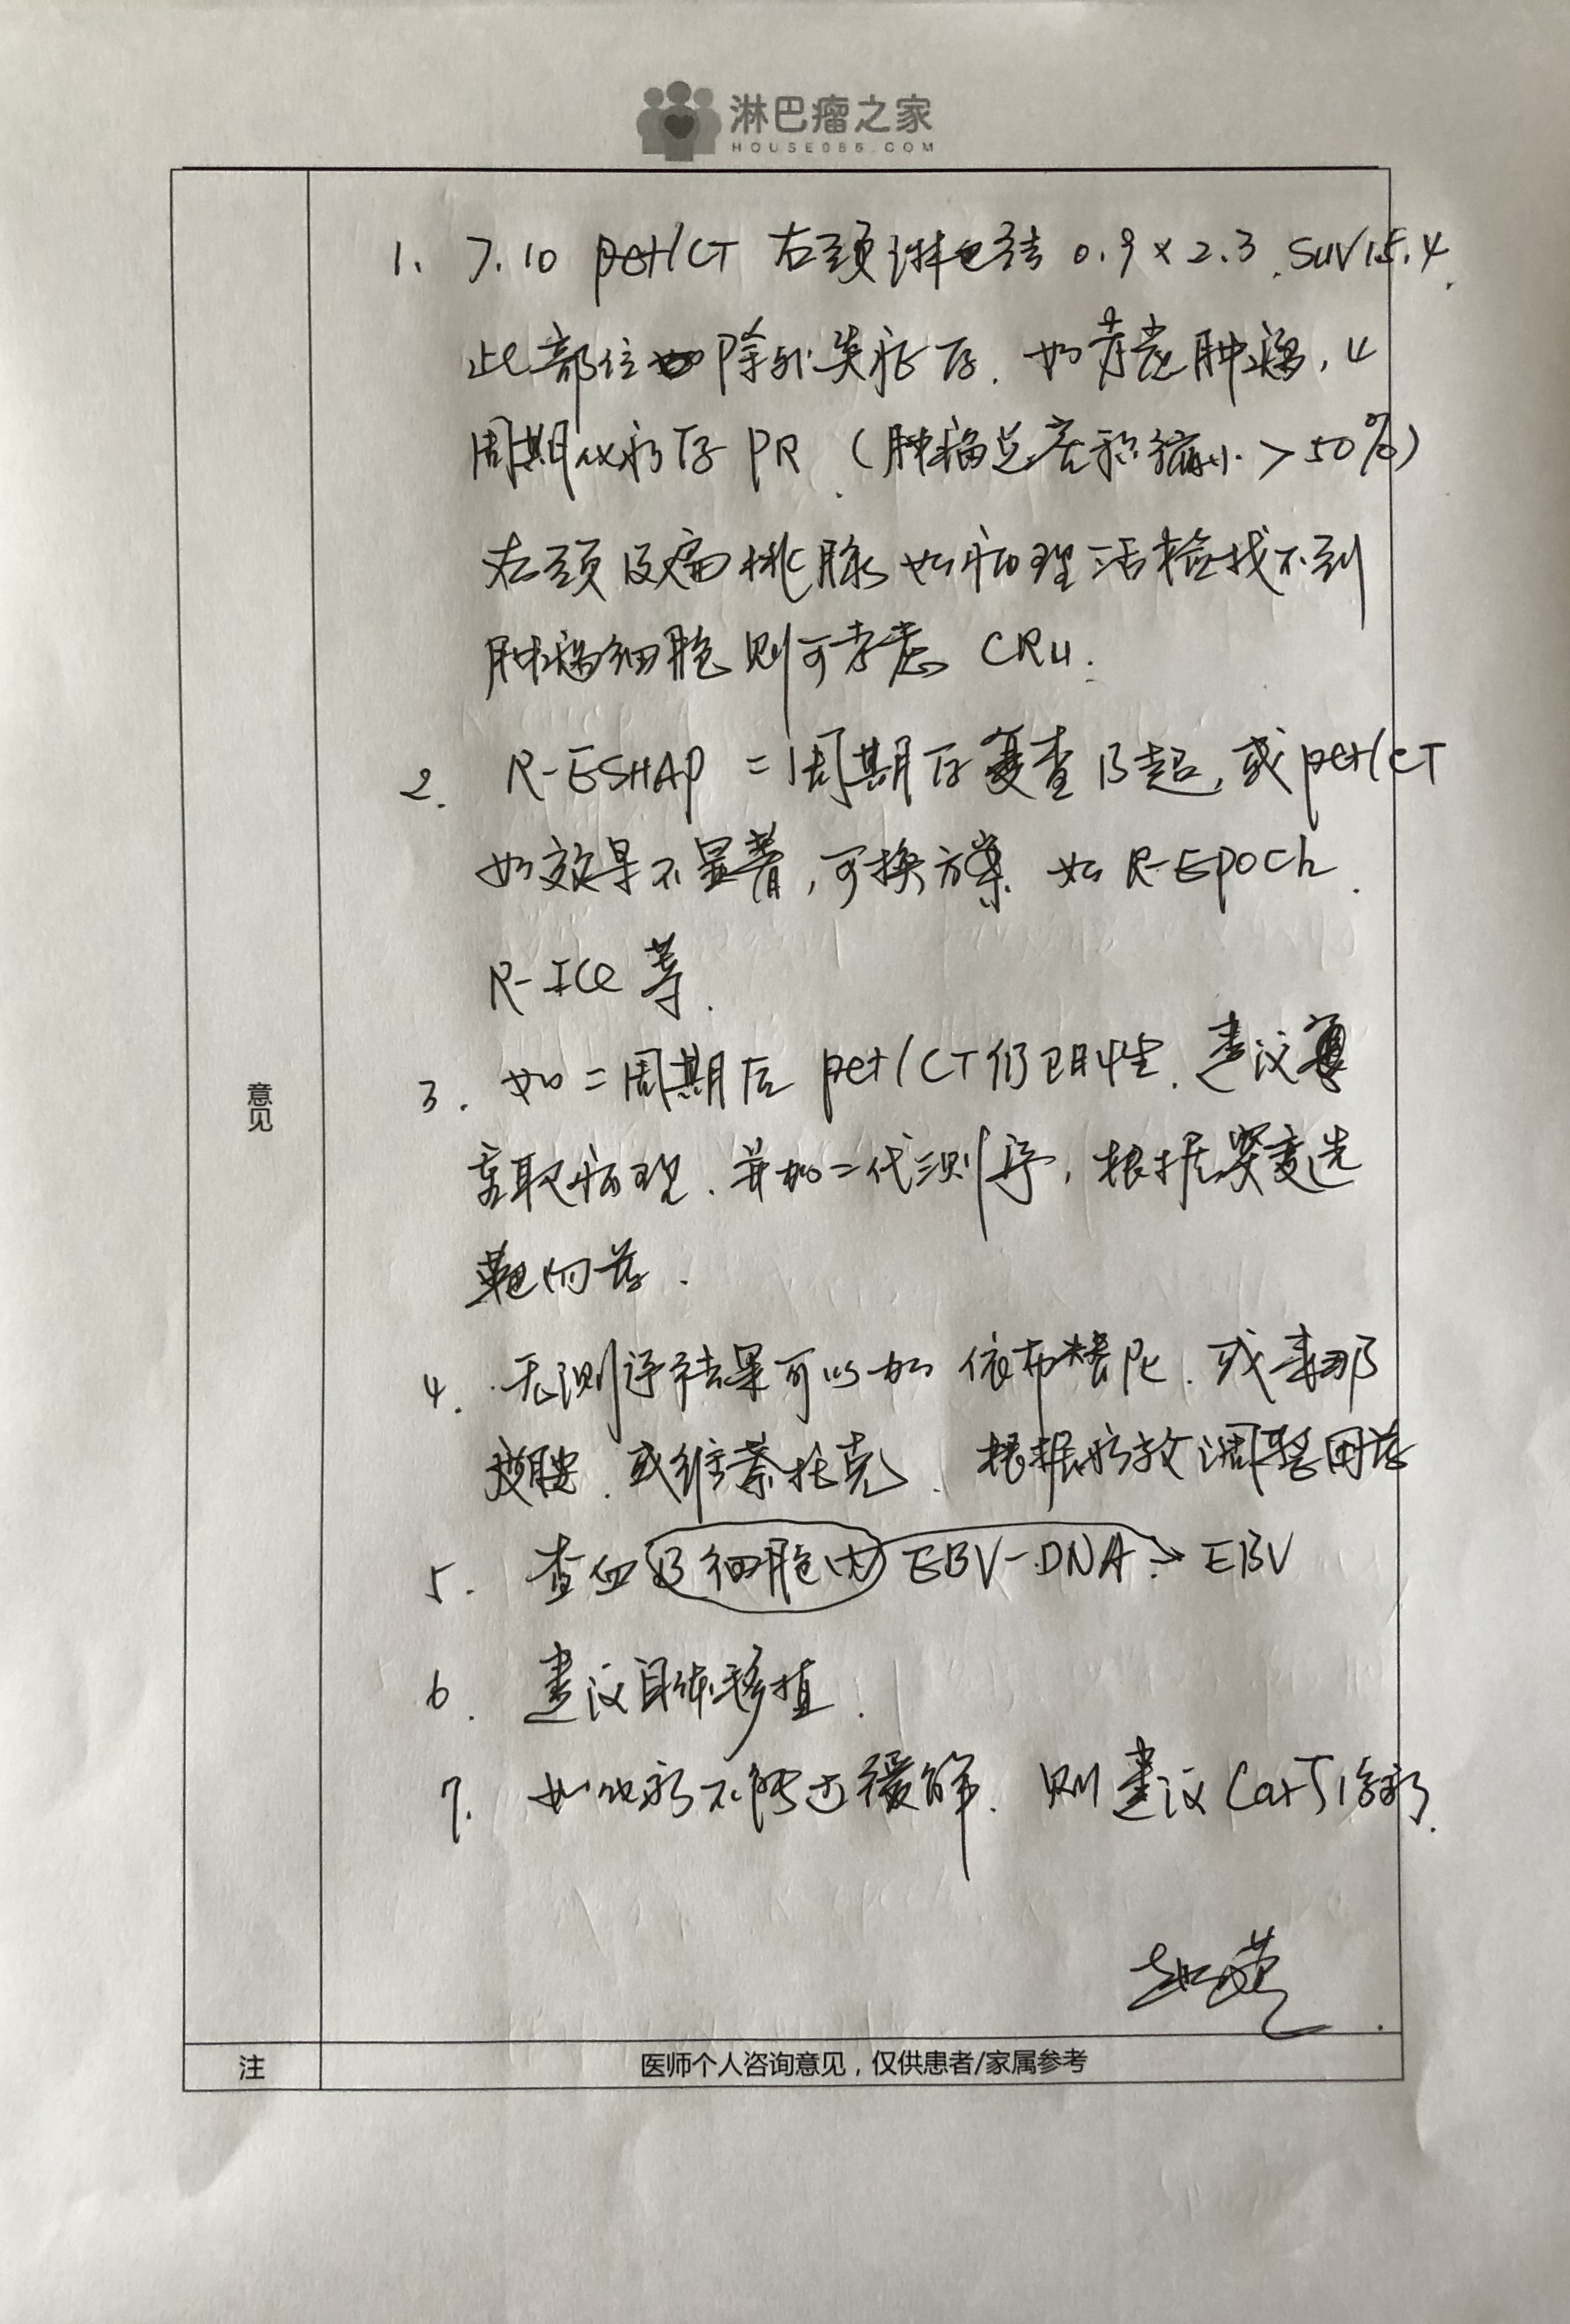 淋巴瘤之家
HOUSE086.COM
1. 7.10 pet/CT 右颈淋巴结 0.9×2.3. SUV15.4.
此部位 除外炎症后. 如考虑肿瘤, 4
周期化疗后 PR (肿瘤总在积缩小>50%)
右颈及扁桃腺 如病理活检找不到
肿瘤细胞 则可考虑 CRu.
2. R-ESHAP 二周期后复查B超, 或pet/CT
如效果不显著, 可换方案. 如 R-EPOCh.
R-ICE 等.
3. 如二周期后 pet/CT仍阳性. 建议
重取病理. 并加二代测序, 根据突变选
靶向药.
4. 无测序结果可以加 依布替尼. 或来那
度胺. 或维萘托克. 根据疗效调整用药
5. 查血B细胞内 EBV-DNA → EBV
6. 建议自体移植.
7. 如化疗不能达缓解. 则建议 CarT治疗.
意见
注
医师个人咨询意见，仅供患者/家属参考